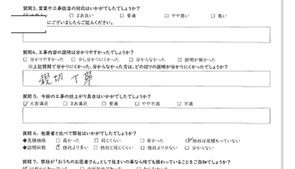 質問3. 営業や工事担当の対応はいかがでしたでしょうか?
□ まあ良い □ 普通 □ やや悪い □ 悪い
にございましたらご記入ください。
質問4. 工事内容の説明は分かりやすかったでしょうか?
□ 分かりやすかった □ 少し分かりにくかった □ 分かりにくかった □ 説明が無かった
※上記質問で分かりにくかった、分からなかった方は、どの切りの説明が分かりにくかったでしょうか?
親切 丁寧
質問5. 今回の工事の仕上がり具合はいかがでしたでしょうか?
大変満足 □ まあ満足 □ 普通 □ やや不満 □ 不満
質問6. 他業者と比べて弊社はいかがでしたでしょうか?
◆見積価格 □ 高かった □ 同じくらい □ 安かった 他社は見積もっていない
◆訪問回数 他社より多い □ 他社より少ない □ 同じくらい □ 分からない
質問7. 弊社が「おうちのお医者さん」として住まいの事なら何でも携わっていることをご存知でしょうか?